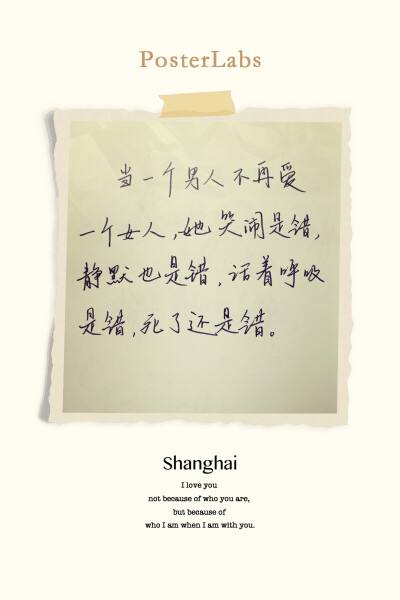 PosterLabs
当一个男人不再爱
一个女人,她哭闹是错,
静默也是错,活着呼吸
是错,死了还是错。
Shanghai
I love you
not because of who you are,
but because of
who I am when I am with you.